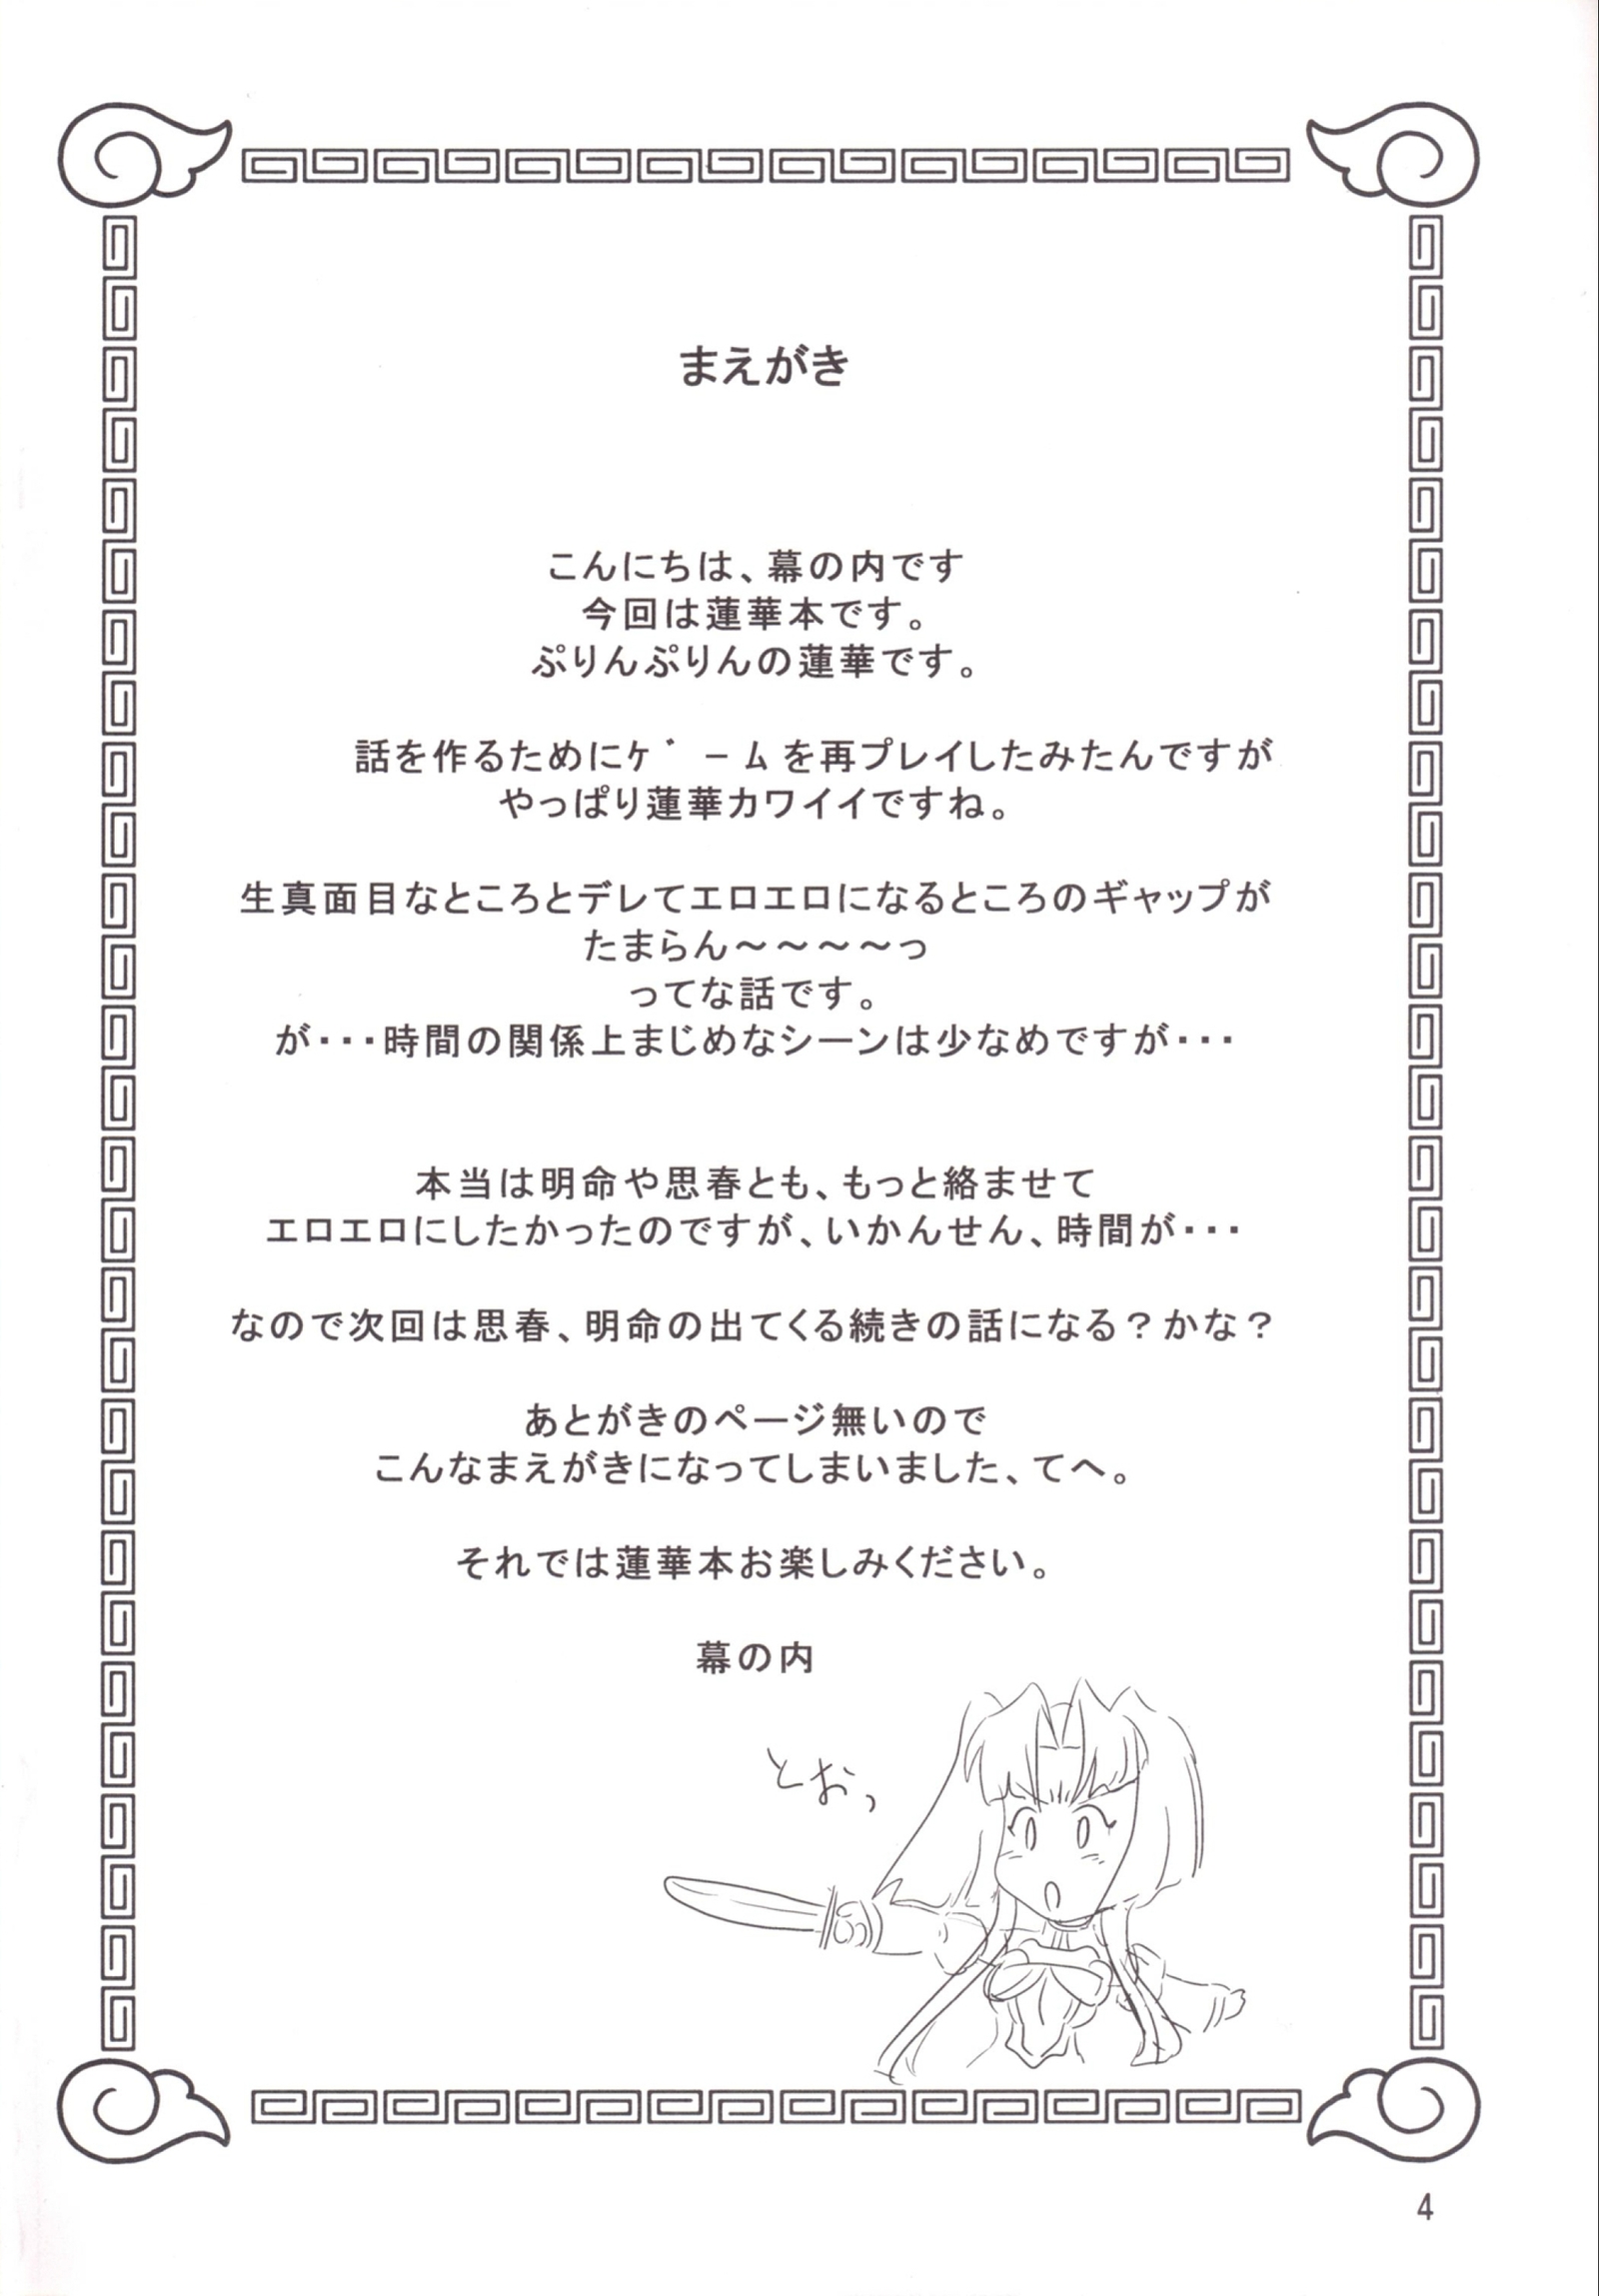 まえがき
こんにちは、幕の内です
今回は蓮華本です。
ぷりんぷりんの蓮華です。
話を作るためにｹﾞｰﾑを再プレイしたみたんですが
やっぱり蓮華カワイイですね。
生真面目なところとデレてエロエロになるところのギャップが
たまらん～～～～っ
ってな話です。
が・・・時間の関係上まじめなシーンは少なめですが・・・
本当は明命や思春とも、もっと絡ませて
エロエロにしたかったのですが、いかんせん、時間が・・・
なので次回は思春、明命の出てくる続きの話になる？かな？
あとがきのページ無いので
こんなまえがきになってしまいました、てへ。
それでは蓮華本お楽しみください。
幕の内
とおっ
4